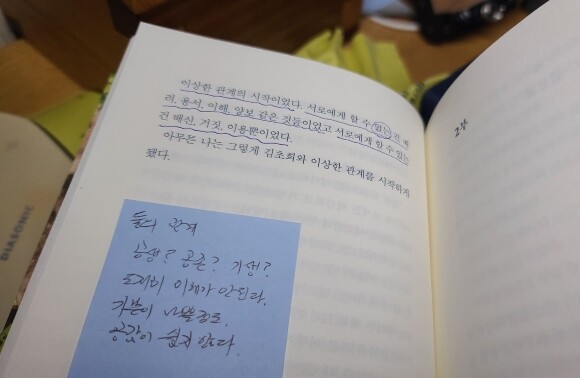 이상한 관계의 시작이었다. 서로에게 할 수 없는 건 배
려, 용서, 이해, 양보 같은 것들이었고 서로에게 할 수 있는
건 배신, 거짓, 이용뿐이었다.
아무튼 나는 그렇게 김초희와 이상한 관계를 시작하게
됐다.
둘의 관계
공생? 공존? 기생?
도저히 이해가 안된다.
기분이 나쁠정도.
공감이 쉽지 않다.
2부
DIASONIC